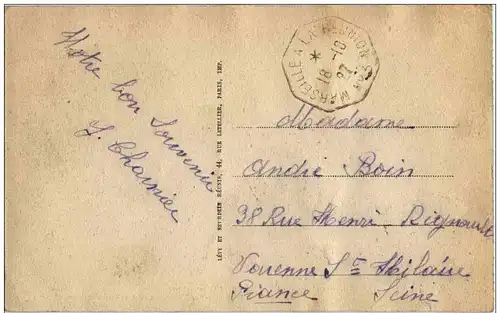 Notre bon Souvenir
J. Charrier
LÉVY ET NEURDEIN RÉUNIS, 44, RUE LETELLIER, PARIS, IMP.
MARSEILLE A LA REUNION
18-10
27
Madame
André Boin
38 Rue Henri-Rignault
Varenne St Hilaire
France Seine